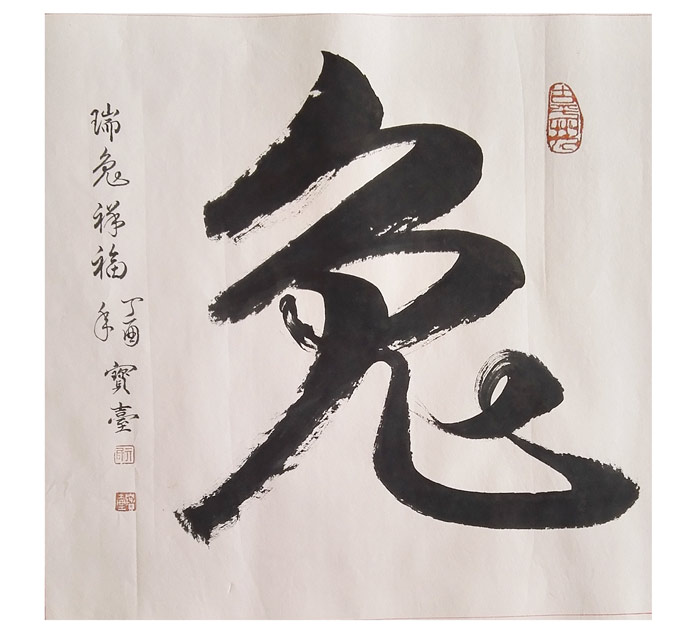 兔
瑞兔祥福
丁酉
年
寶臺